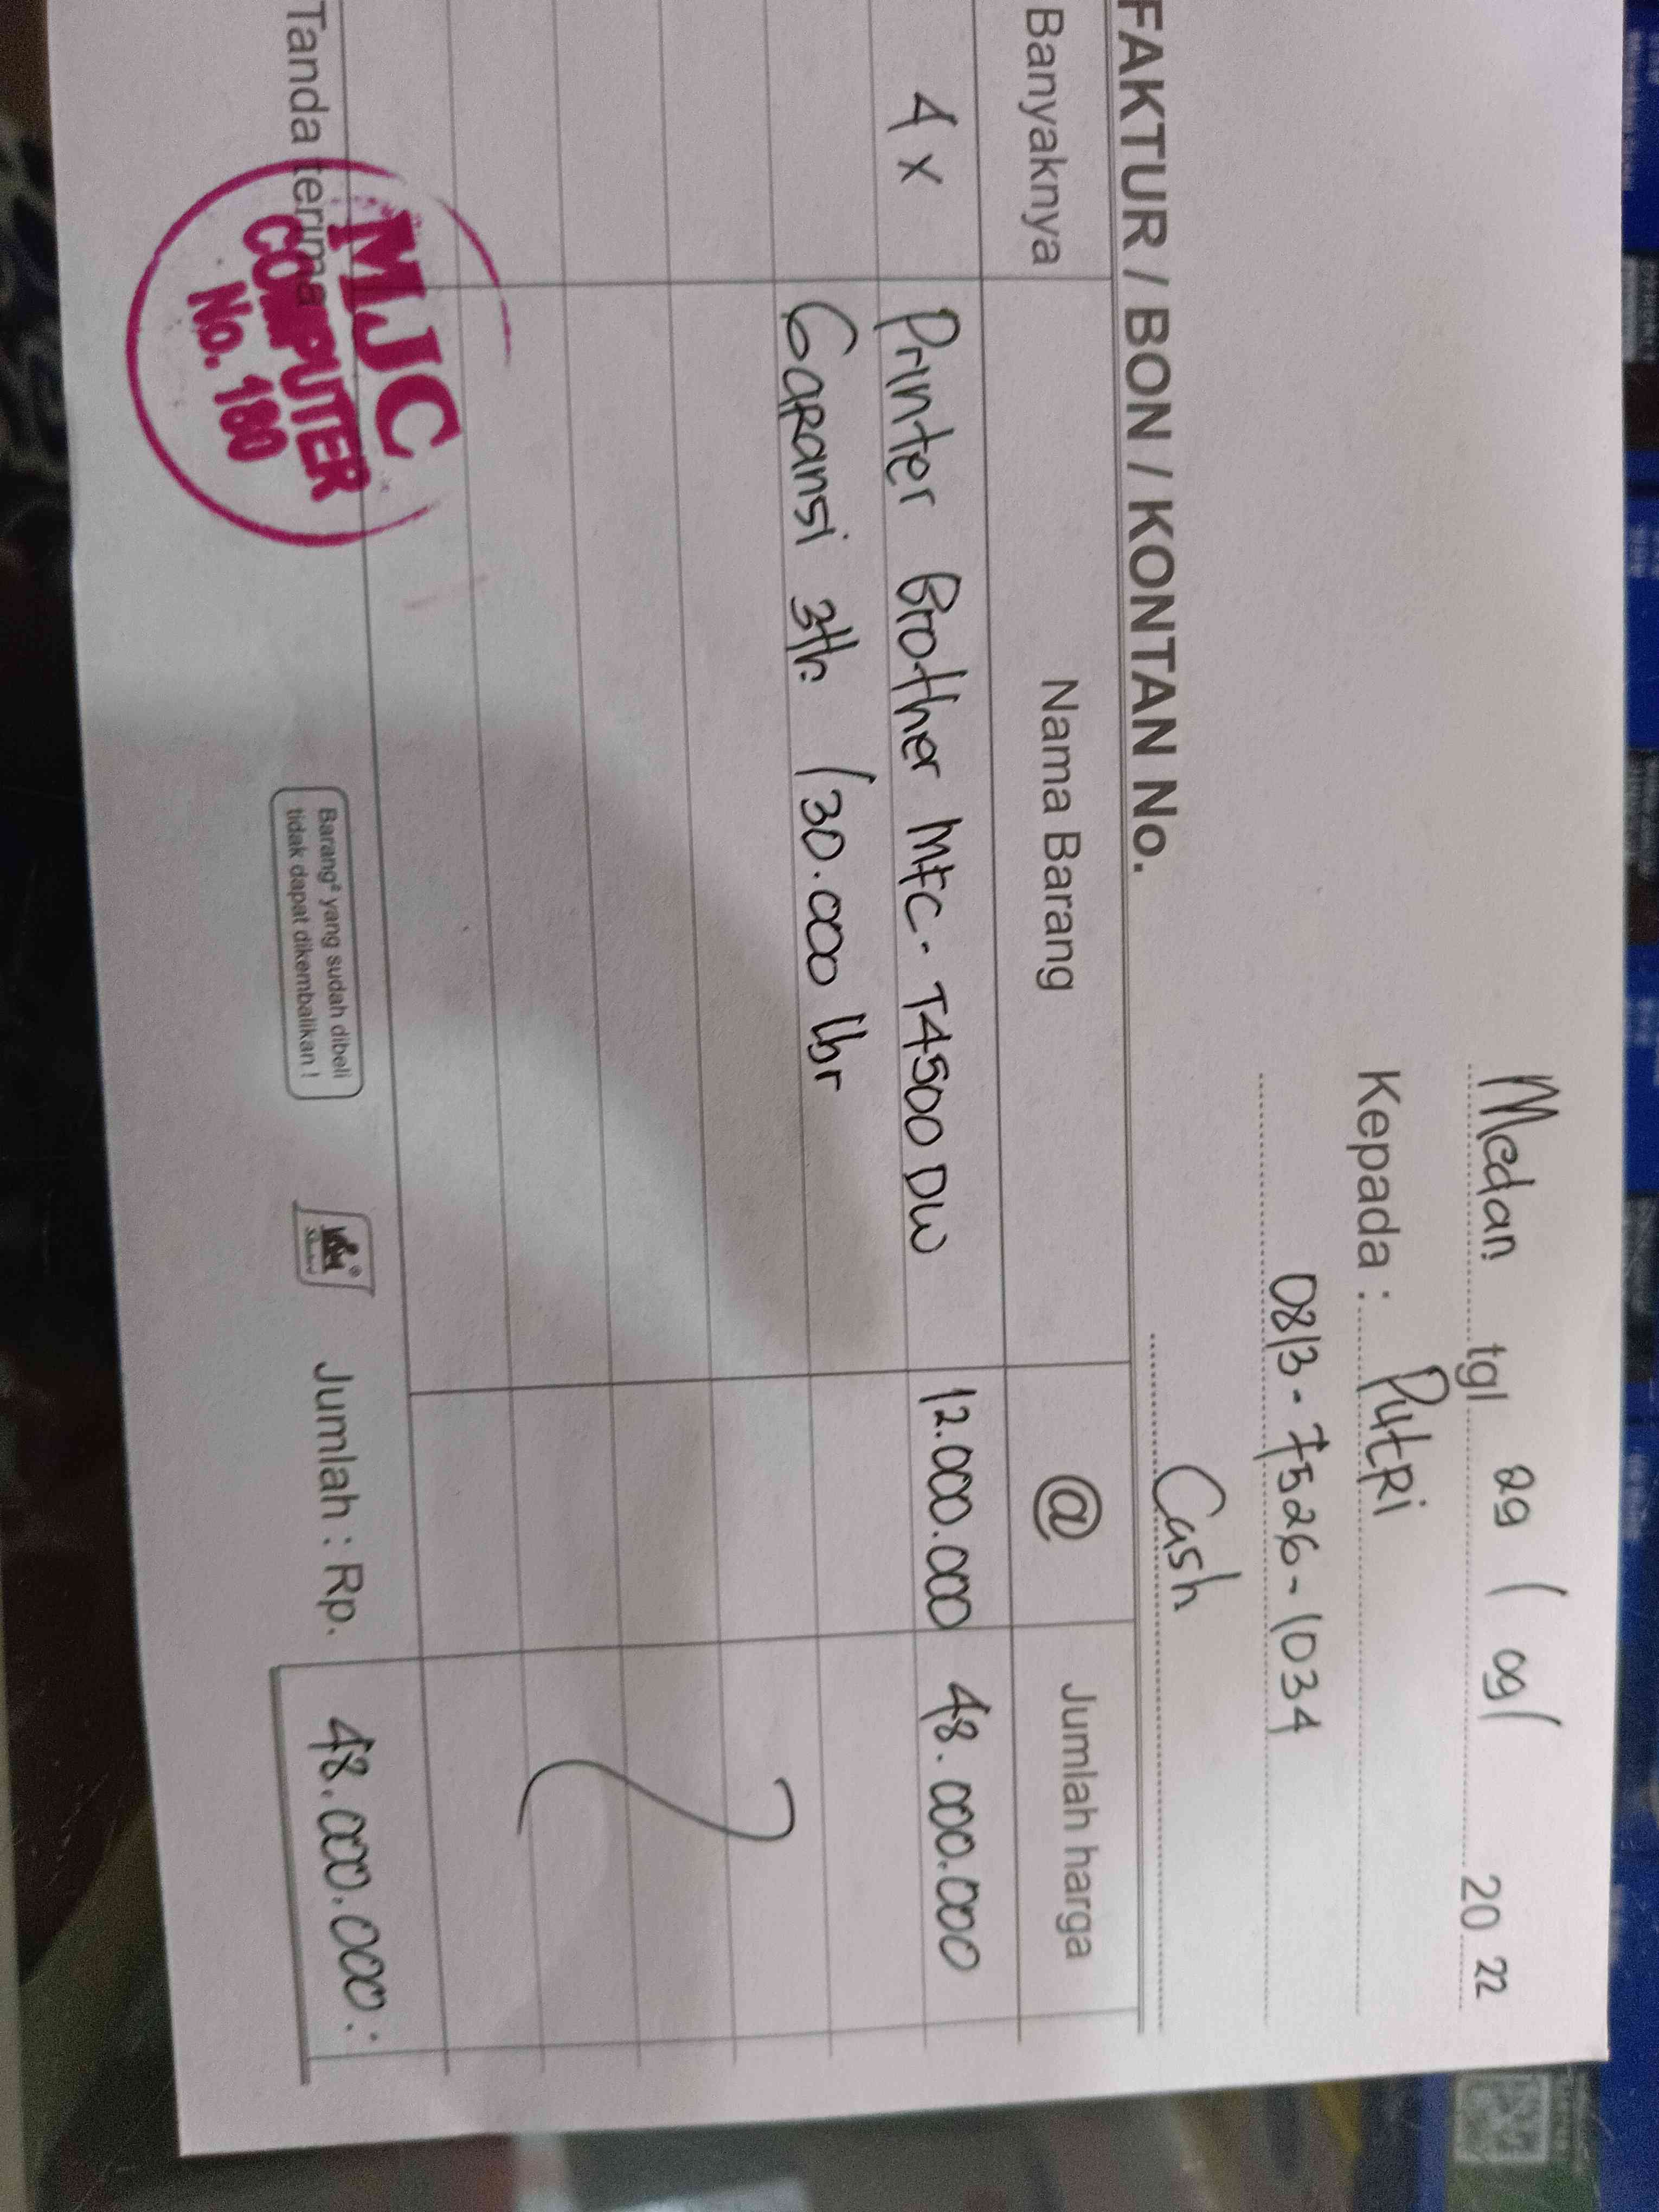 Medan tgl 29 / 09 / 20 22
Kepada : Putri
0813-7526-1034
Cash
FAKTUR / BON / KONTAN No.
Banyaknya Nama Barang @ Jumlah harga
4 x Printer Brother MFC-T4500 DW 12.000.000 48.000.000
Garansi 3th /30.000 lbr
Tanda terima
MJC
COMPUTER
No. 180
Barang² yang sudah dibeli
tidak dapat dikembalikan !
Jumlah : Rp. 48.000.000